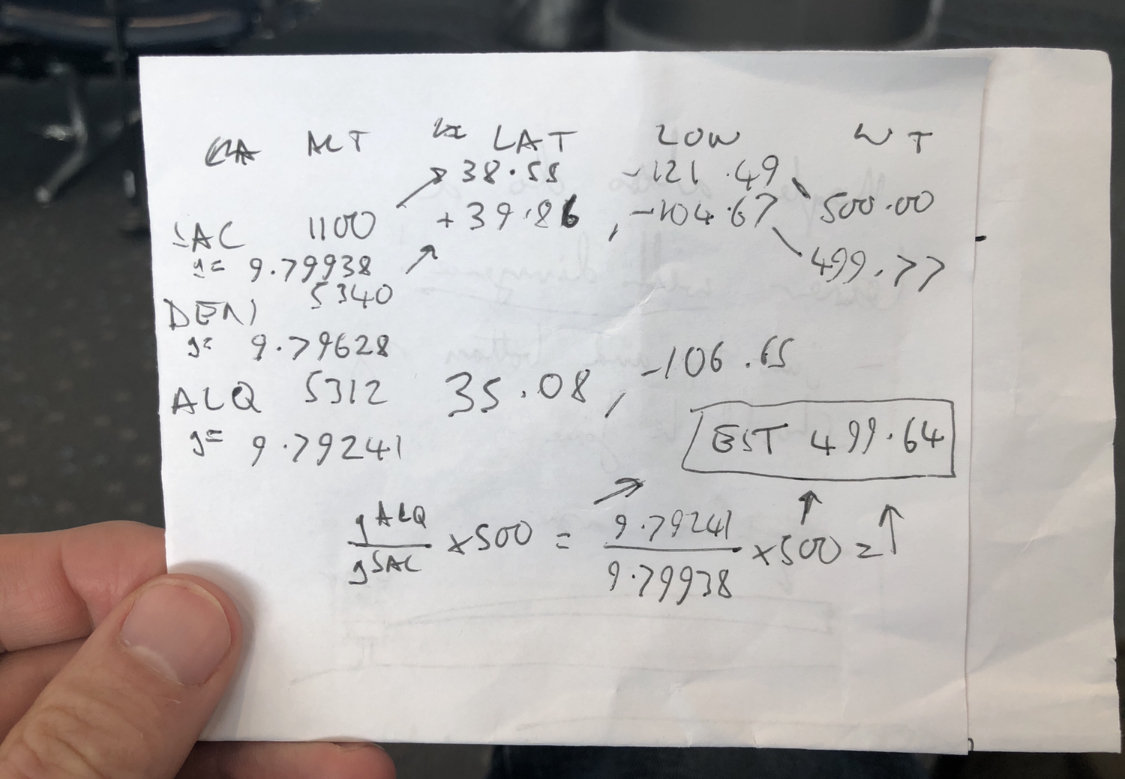 ALT LAT LON WT
38.55 -121.49
SAC 1100 +39.86, -104.67 500.00
g= 9.79938 499.77
DEN 5340
g= 9.79628
ALQ 5312 35.08, -106.65
g= 9.79241 EST 499.64
gALQ/gSAC ×500 = 9.79241/9.79938 ×500 =